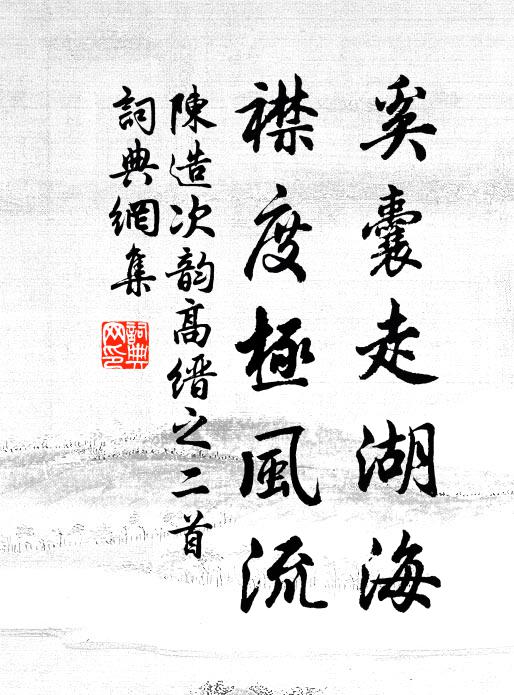 奚囊走湖海
襟度極風流
陳造次韵高縉之二首
詞典網集
詞典网印